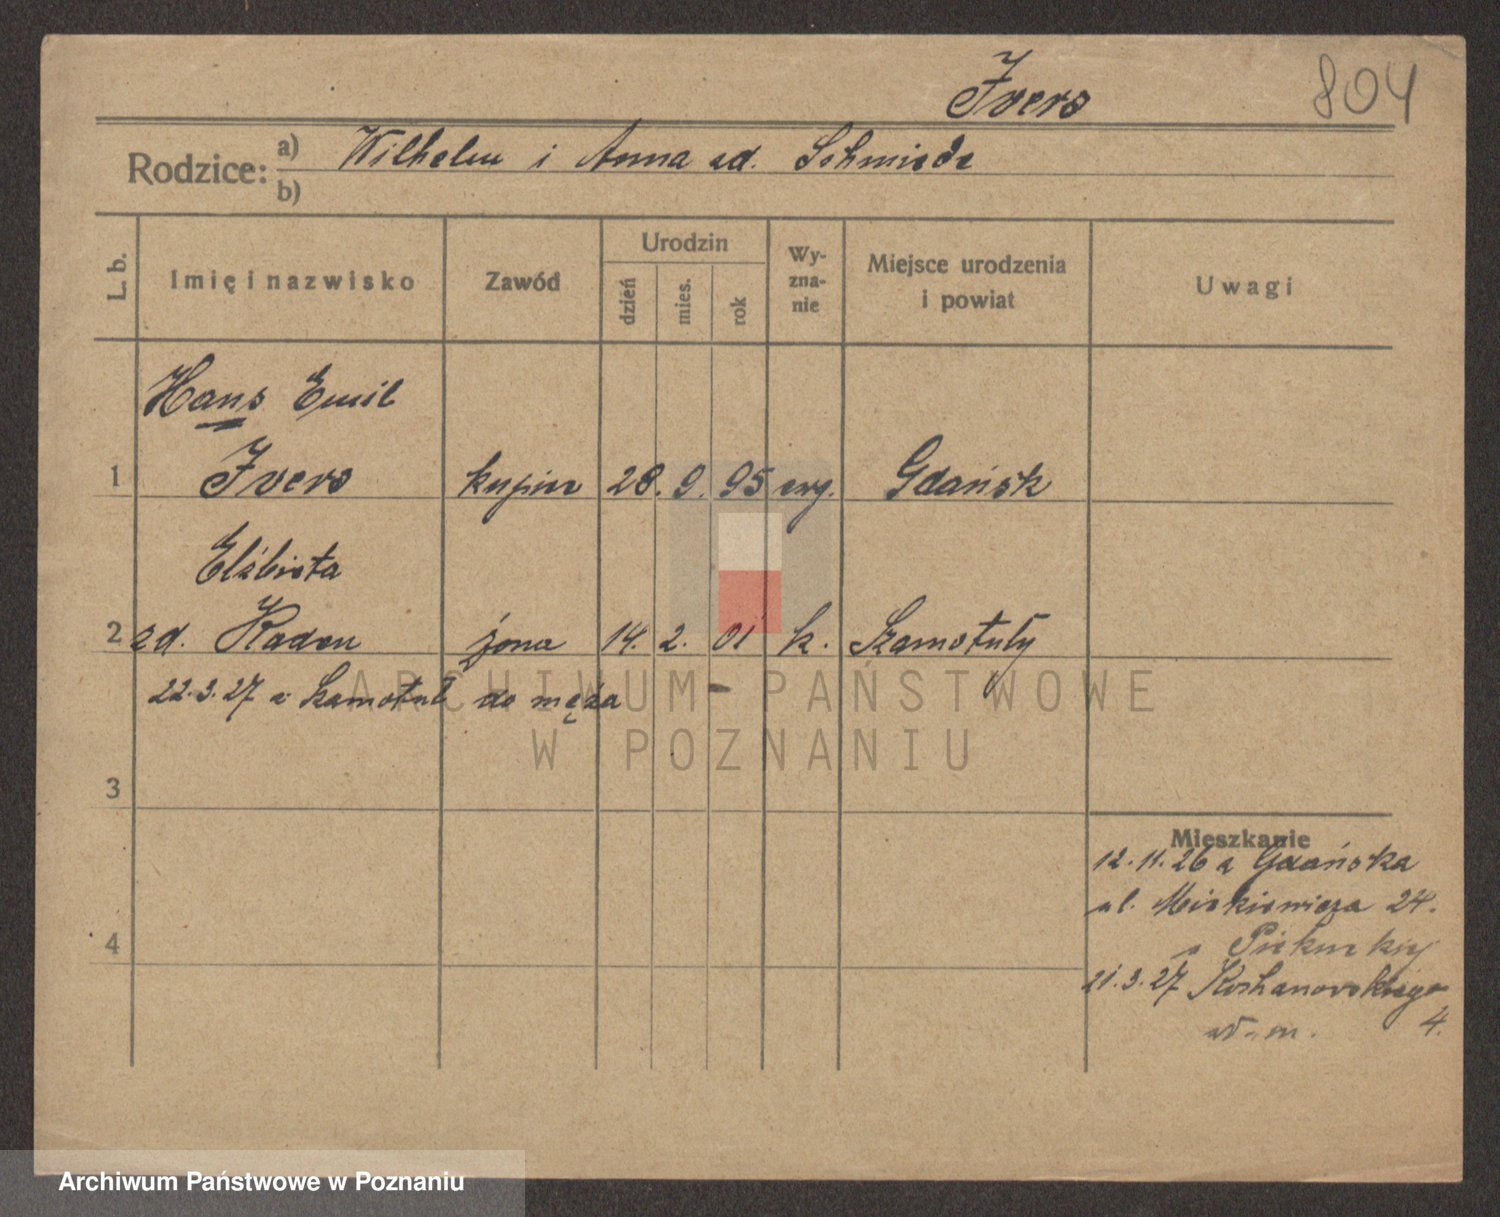 Ivers
804
Rodzice:
a) Wilhelm i Anna zd. Schmiede
b)
L. b.
Imię i nazwisko
Zawód
Urodzin
dzień
mies.
rok
Wy-
zna-
nie
Miejsce urodzenia
i powiat
Uwagi
Hans Emil
1 Ivers kupiec 28. 9. 95 ewg. Gdańsk
Elżbieta
2 zd. Radon żona 14. 2. 01 k. Szamotuły
22.3.27 z Szamotuł do męża
3
4
Mieszkanie
12.11.26 z Gdańska
ul. Mickiewicza 24.
21.3.27 Kochanowskiego
4.
ARCHIWUM PAŃSTWOWE
W POZNANIU
Archiwum Państwowe w Poznaniu